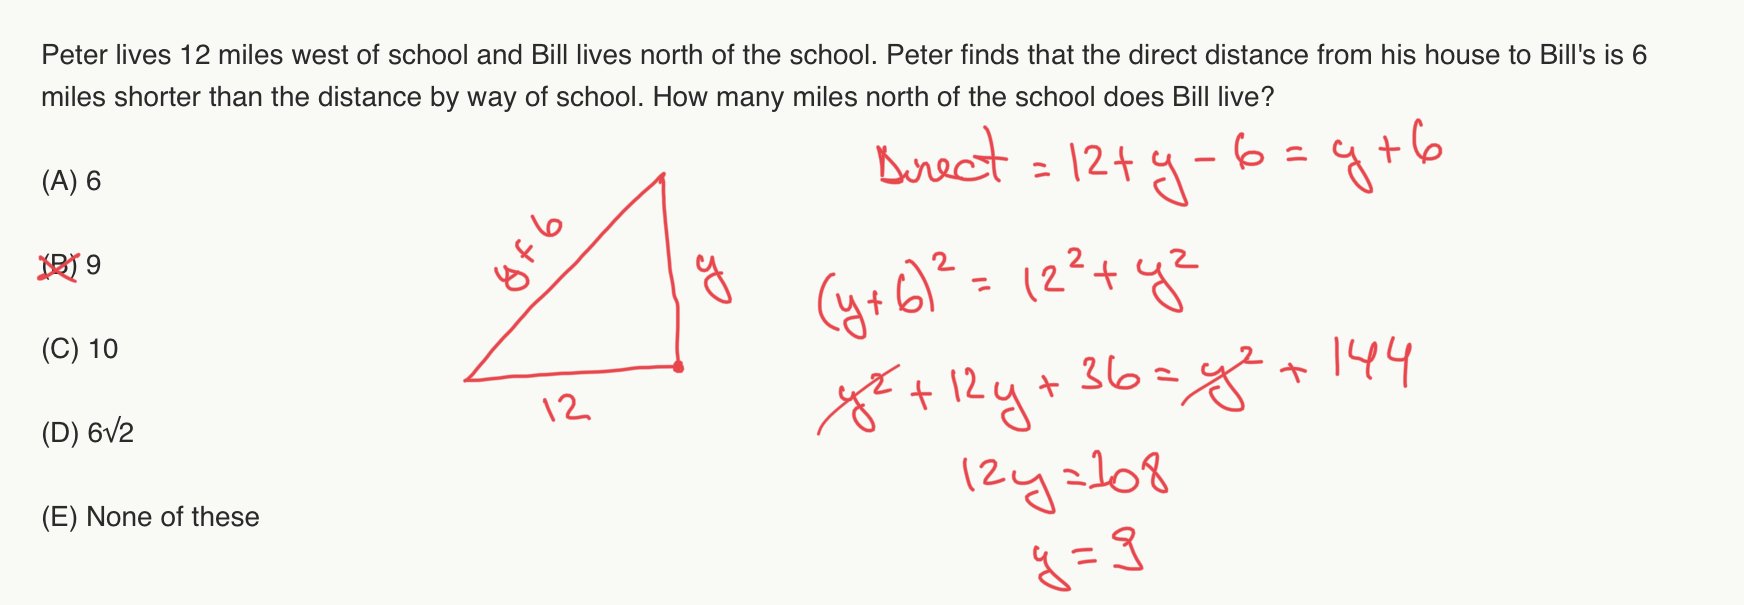 Peter lives 12 miles west of school and Bill lives north of the school. Peter finds that the direct distance from his house to Bill's is 6
miles shorter than the distance by way of school. How many miles north of the school does Bill live?
Direct = 12 + y - 6 = y + 6
(A) 6
y + 6
y
(B) 9
(y + 6)² = 12² + y²
(C) 10
y² + 12y + 36 = y² + 144
12
(D) 6√2
12y = 108
(E) None of these
y = 9